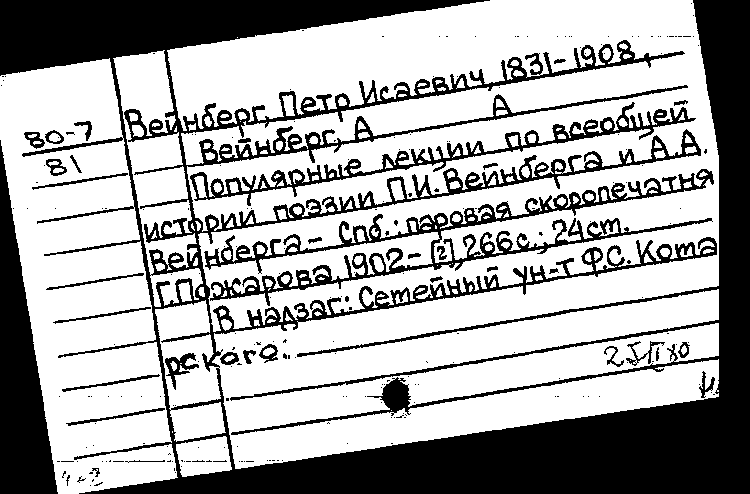 80-7
81
Вейнберг, Петр Исаевич, 1831-1908,
Вейнберг, А А
Популярные лекции по всеобщей
истории поэзии П.И. Вейнберга и А.А.
Вейнберга - Спб.: паровая скоропечатня
Г. Пожарова, 1902.- [2], 266 с.; 24 ст.
В надзаг.: Семейный ун-т Ф.С. Кома
рскаго.